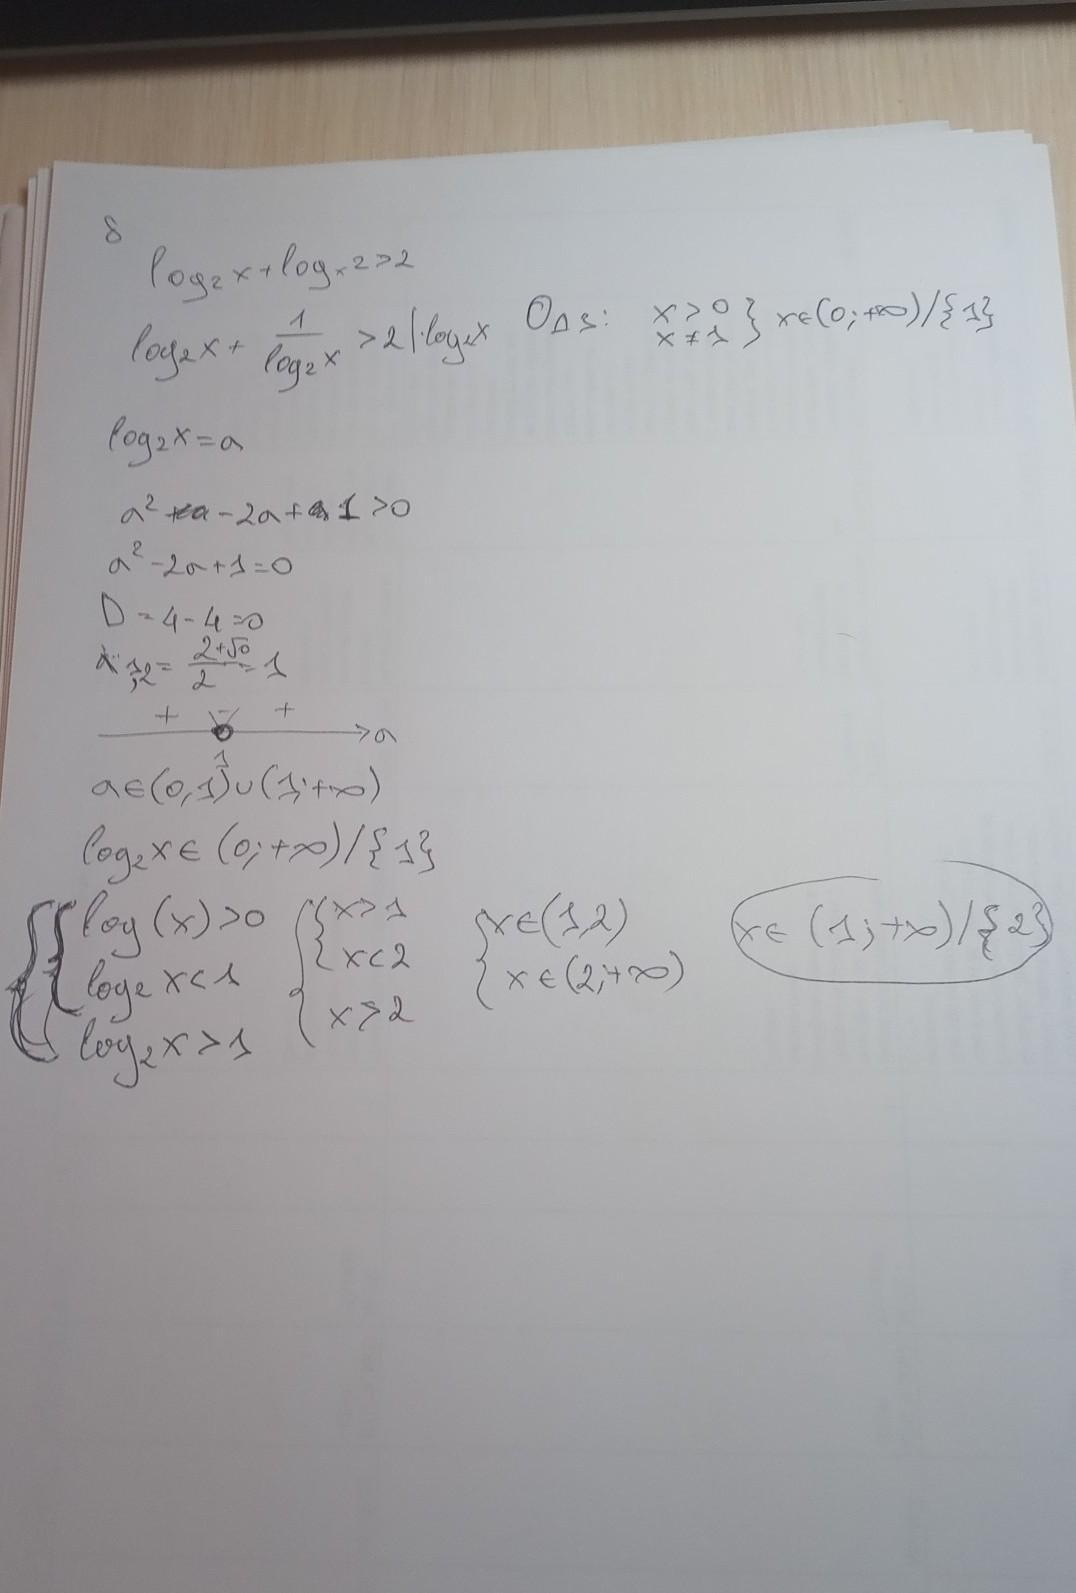 8
log₂x+logₓ2>2
log₂x + 1/log₂x >2 |·log₂x ОДЗ: x>0 x≠1 } x∈(0;+∞)/{1}
log₂x=a
a² -2a+1>0
a²-2a+1=0
D=4-4=0
₁,₂= (2+√0)/2=1
+ - + a
1
a∈(0,1)∪(1;+∞)
log₂x∈(0;+∞)/{1}
{ { log(x)>0 { { x>1 { x∈(1,2) x∈(1;+∞)/{2}
log₂x<1 x<2 x∈(2;+∞)
log₂x>1 x>2